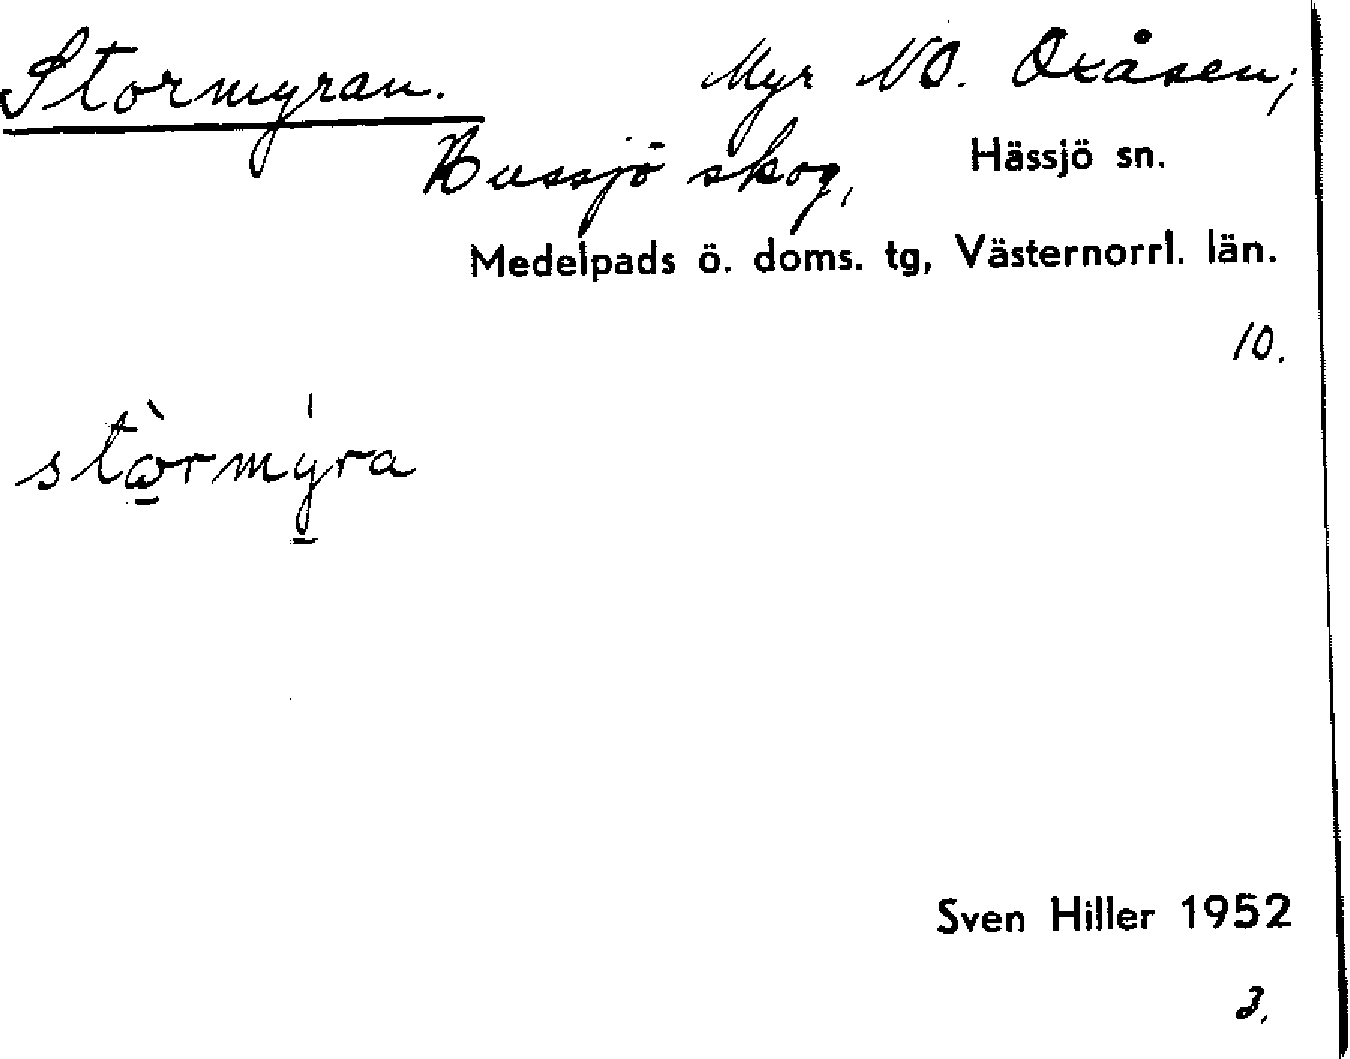 Stormyran. Myr NO. Oxåsen;
Hussjö skog, Hässjö sn.
Medelpads ö. doms. tg, Västernorrl. län.
10.
stòrmýra
Sven Hiller 1952
3.